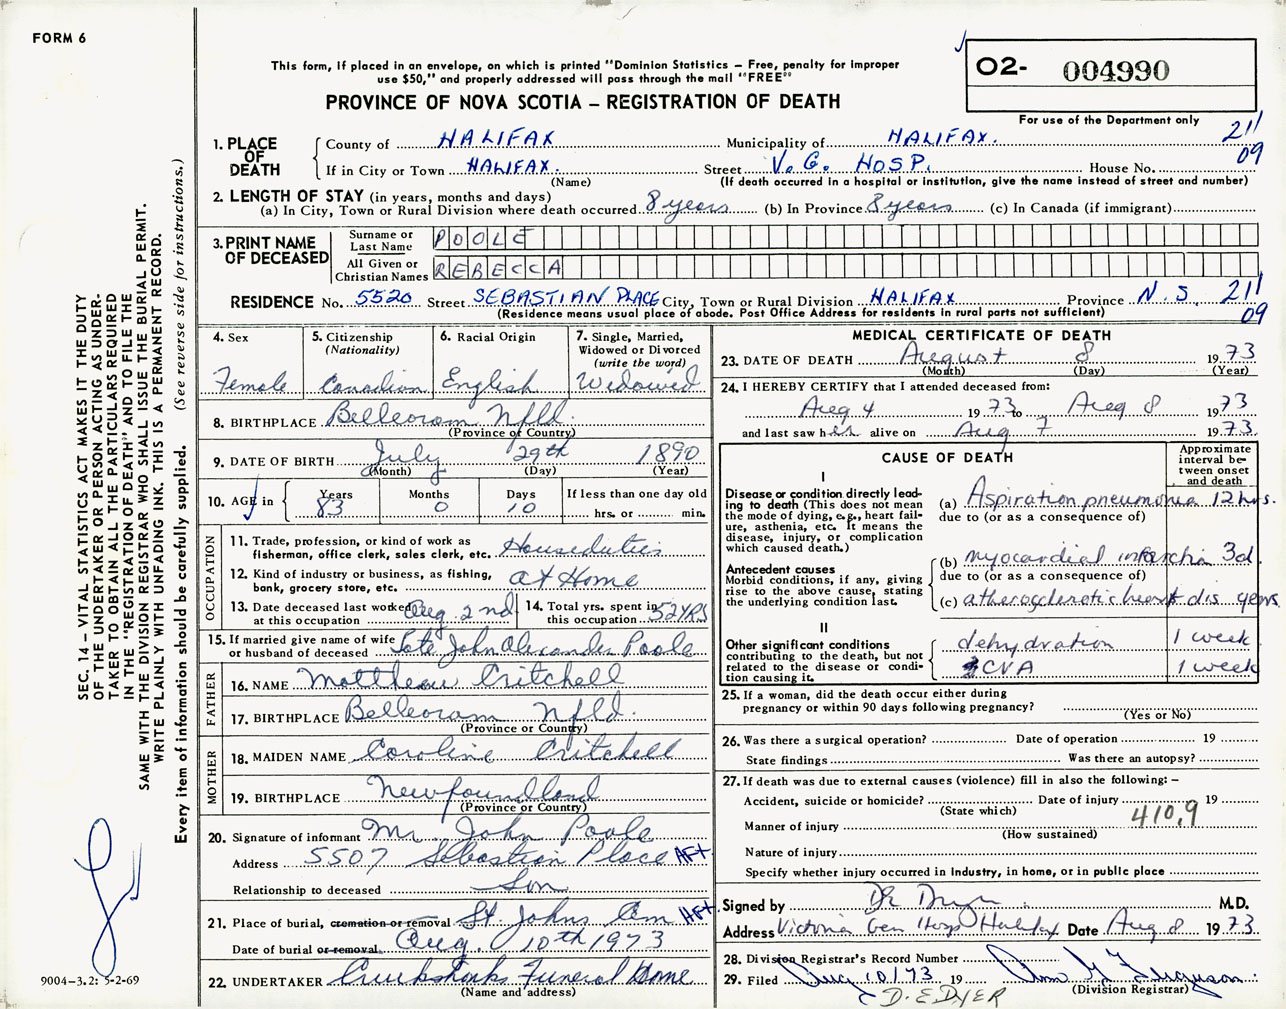 FORM 6
This form, if placed in an envelope, on which is printed "Dominion Statistics – Free, penalty for improper
use $50," and properly addressed will pass through the mail "FREE"
PROVINCE OF NOVA SCOTIA – REGISTRATION OF DEATH
O2- 004990
For use of the Department only
211
09
1. PLACE OF DEATH
County of HALIFAX Municipality of HALIFAX.
If in City or Town HALIFAX. Street V. G. HOSP. House No.
(Name) (If death occurred in a hospital or institution, give the name instead of street and number)
2. LENGTH OF STAY (in years, months and days)
(a) In City, Town or Rural Division where death occurred 8 years (b) In Province 8 years (c) In Canada (if immigrant)
3. PRINT NAME OF DECEASED
Surname or Last Name POOLE
All Given or Christian Names REBECCA
RESIDENCE No. 5520 Street SEBASTIAN PLACE City, Town or Rural Division HALIFAX Province N.S. 211
(Residence means usual place of abode. Post Office Address for residents in rural parts not sufficient) 09
4. Sex Female
5. Citizenship (Nationality) Canadian
6. Racial Origin English
7. Single, Married, Widowed or Divorced (write the word) Widowed
8. BIRTHPLACE Belleoram Nfld.
(Province or Country)
9. DATE OF BIRTH July 29th 1890
(Month) (Day) (Year)
10. AGE in Years 83 Months 0 Days 10 If less than one day old
hrs. or min.
OCCUPATION
11. Trade, profession, or kind of work as
fisherman, office clerk, sales clerk, etc. Houseduties
12. Kind of industry or business, as fishing,
bank, grocery store, etc. at Home
13. Date deceased last worked at this occupation Aug 2nd
14. Total yrs. spent in this occupation 52 YRS
15. If married give name of wife
or husband of deceased Late John Alexander Poole
FATHER
16. NAME Matthew Critchell
17. BIRTHPLACE Belleoram Nfld.
(Province or Country)
MOTHER
18. MAIDEN NAME Caroline Critchell
19. BIRTHPLACE Newfoundland
(Province or Country)
20. Signature of informant Mr. John Poole
Address 5507 Sebastian Place
Relationship to deceased Son
21. Place of burial, cremation or removal St. Johns Cem
Date of burial or removal Aug. 10th 1973
22. UNDERTAKER Cruikshanks Funeral Home
(Name and address)
MEDICAL CERTIFICATE OF DEATH
23. DATE OF DEATH August 8 1973
(Month) (Day) (Year)
24. I HEREBY CERTIFY that I attended deceased from:
Aug 4 1973 to Aug 8 1973
and last saw her alive on Aug 7 1973
CAUSE OF DEATH
Approximate interval between onset and death
I
Disease or condition directly leading to death (This does not mean the mode of dying, e.g., heart failure, asthenia, etc. It means the disease, injury, or complication which caused death.)
(a) Aspiration pneumonia 12 hrs.
due to (or as a consequence of)
Antecedent causes
Morbid conditions, if any, giving rise to the above cause, stating the underlying condition last.
(b) myocardial infarction 3d.
due to (or as a consequence of)
(c) atherosclerotic heart dis years
II
Other significant conditions
contributing to the death, but not related to the disease or condition causing it.
dehydration 1 week
CVA 1 week
25. If a woman, did the death occur either during
pregnancy or within 90 days following pregnancy?
(Yes or No)
26. Was there a surgical operation? Date of operation 19
State findings Was there an autopsy?
27. If death was due to external causes (violence) fill in also the following: –
Accident, suicide or homicide? Date of injury 19
(State which)
Manner of injury 410.9
(How sustained)
Nature of injury
Specify whether injury occurred in industry, in home, or in public place
Signed by DR M.D.
Address Victoria Gen Hosp Halifax Date Aug 8 1973
28. Division Registrar's Record Number
29. Filed Aug 10/73 19 Ferguson
(Division Registrar)
D. E. DYER
SEC. 14 – VITAL STATISTICS ACT MAKES IT THE DUTY
OF THE UNDERTAKER OR PERSON ACTING AS UNDER-
TAKER TO OBTAIN ALL THE PARTICULARS REQUIRED
IN THE "REGISTRATION OF DEATH" AND TO FILE THE
SAME WITH THE DIVISION REGISTRAR WHO SHALL ISSUE THE BURIAL PERMIT.
WRITE PLAINLY WITH UNFADING INK. THIS IS A PERMANENT RECORD.
Every item of information should be carefully supplied. (See reverse side for instructions.)
9004-3.2: 5-2-69